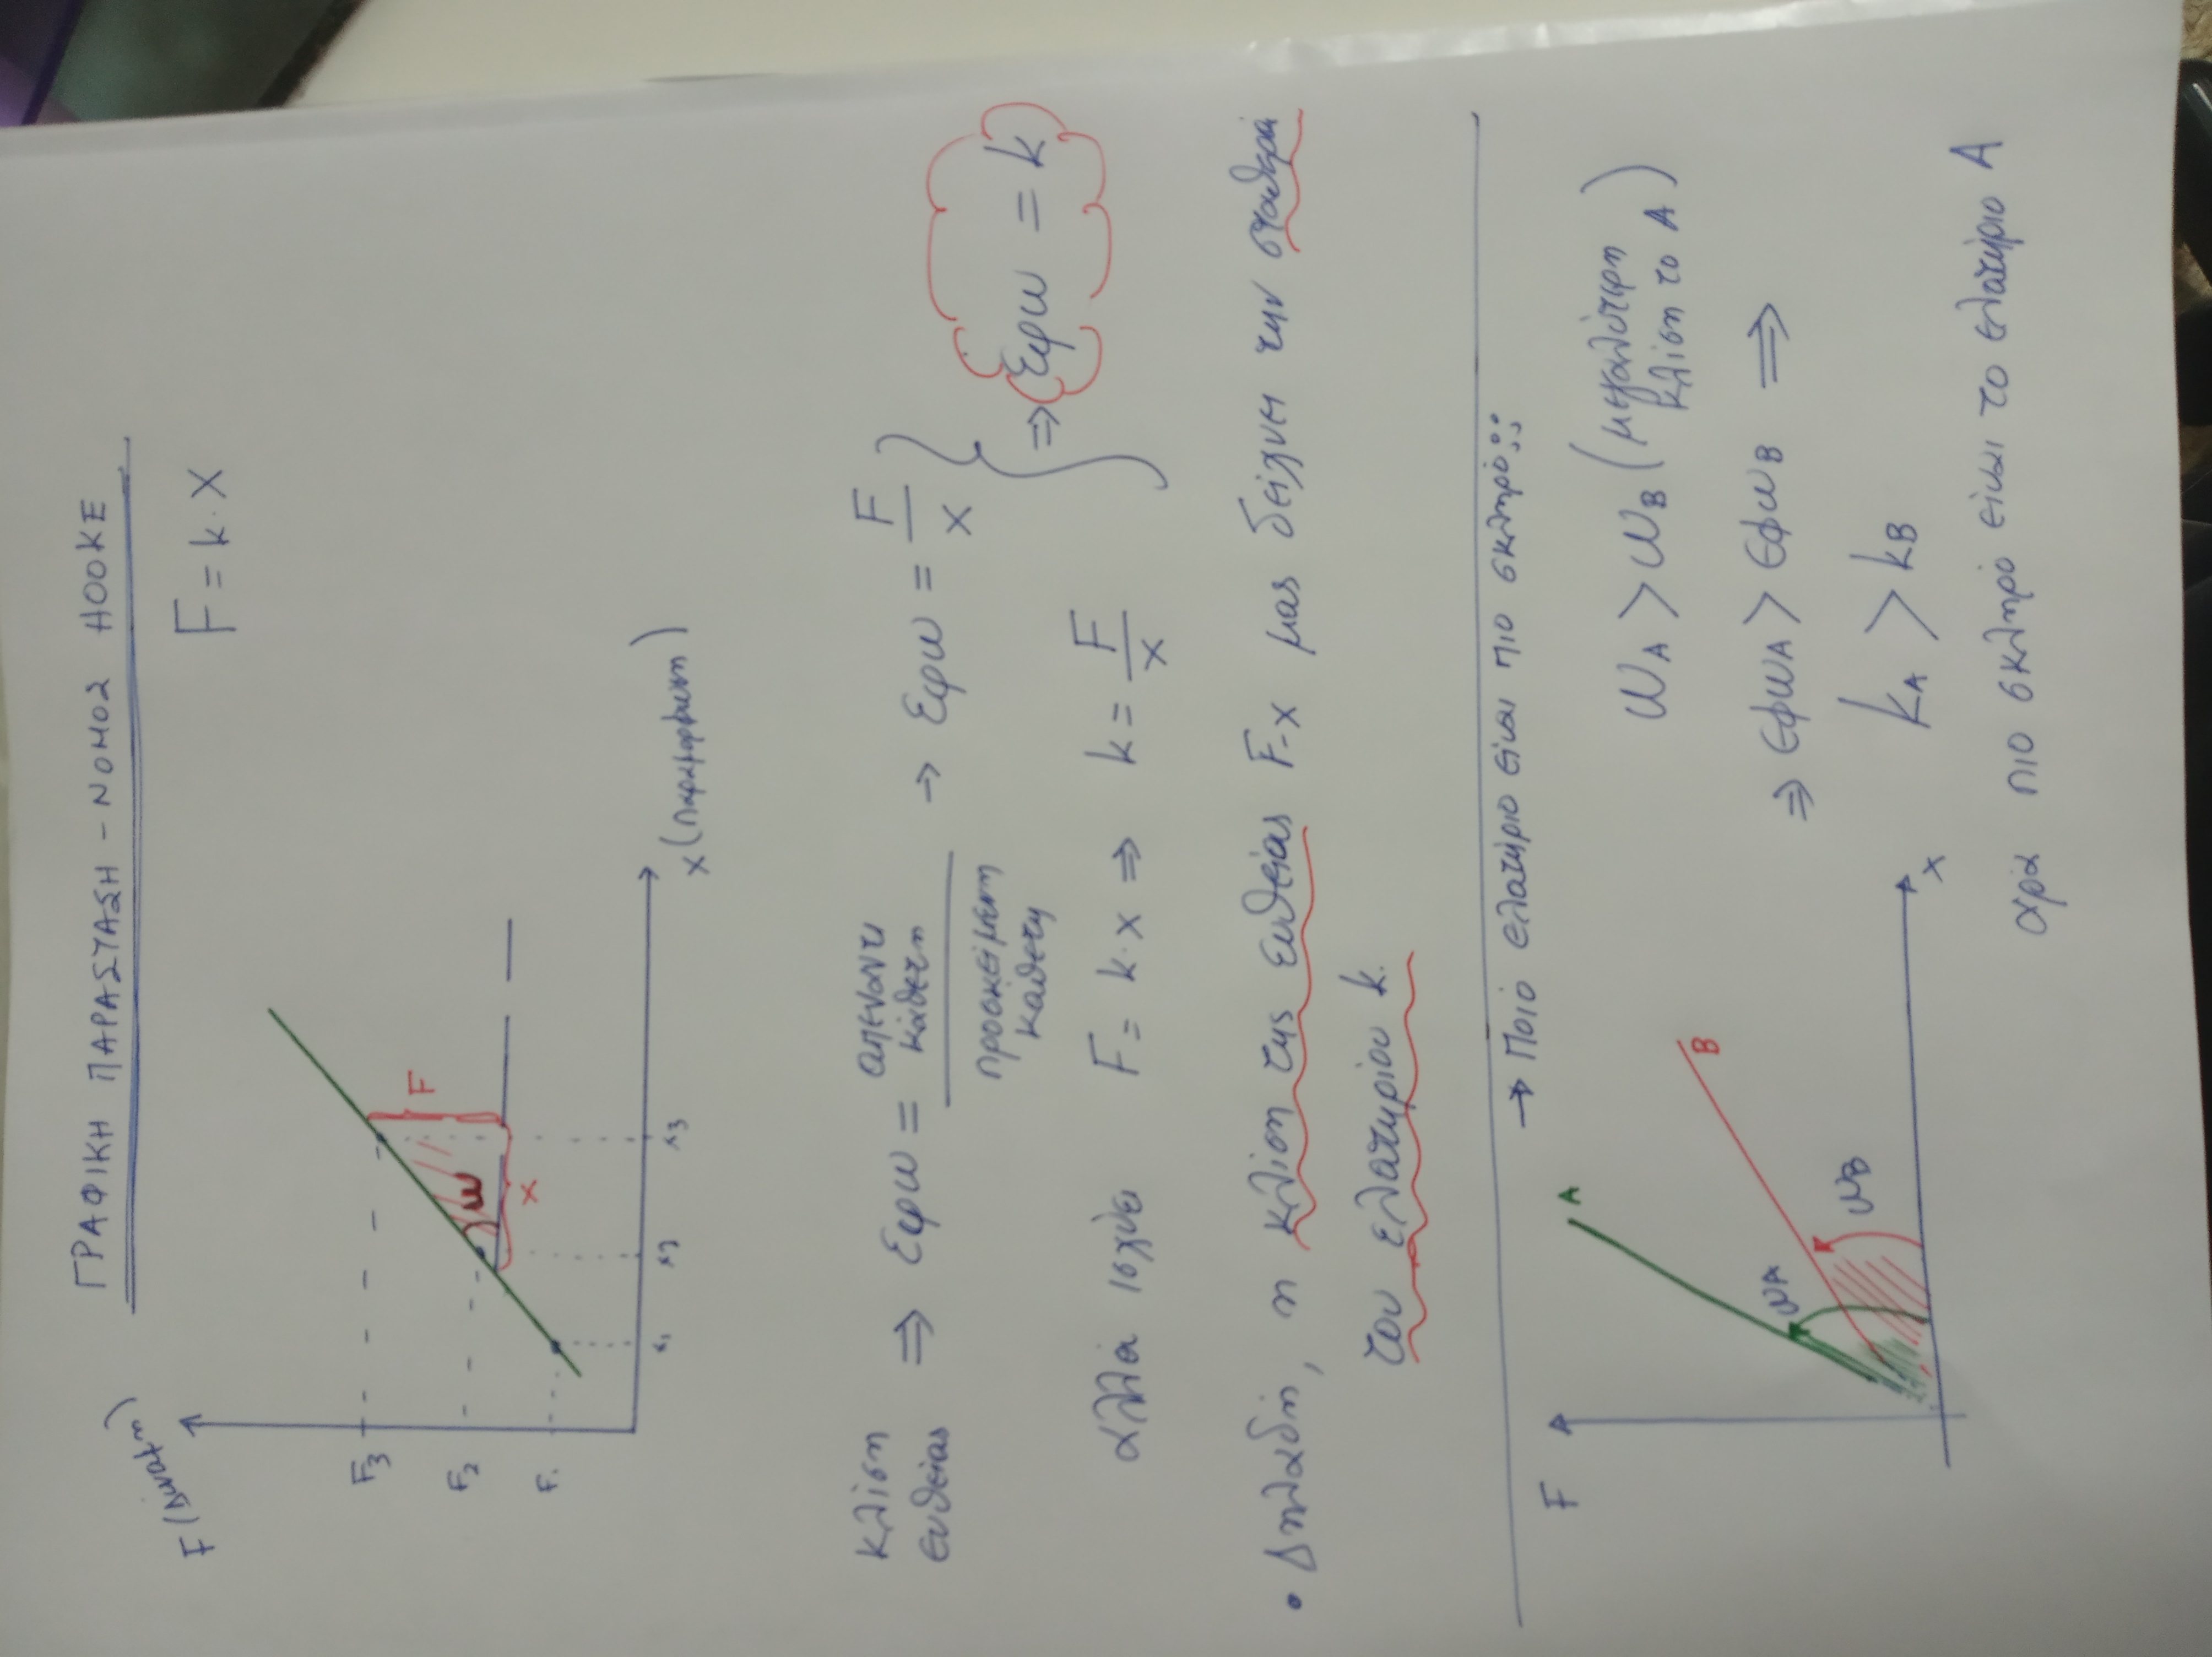 ΓΡΑΦΙΚΗ ΠΑΡΑΣΤΑΣΗ - ΝΟΜΟΣ HOOKE
F = k·x
F (Δύναμη)
F3
F2
F1
F
ω
x
x1
x2
x3
x (παραμόρφωση)
κλίση ευθείας ⇒ εφω = απέναντι κάθετη / προσκείμενη κάθετη → εφω = F/x
αλλά ισχύει F = k·x ⇒ k = F/x
⇒ εφω = k
• Δηλαδή, η κλίση της ευθείας F-x μας δείχνει την σταθερά
του ελατηρίου k.
→ Ποιο ελατήριο είναι πιο σκληρό;;;
F
A
B
ωA
ωB
x
ωA > ωB (μεγαλύτερη
κλίση το A)
⇒ εφωA > εφωB ⇒
kA > kB
άρα πιο σκληρό είναι το ελατήριο A